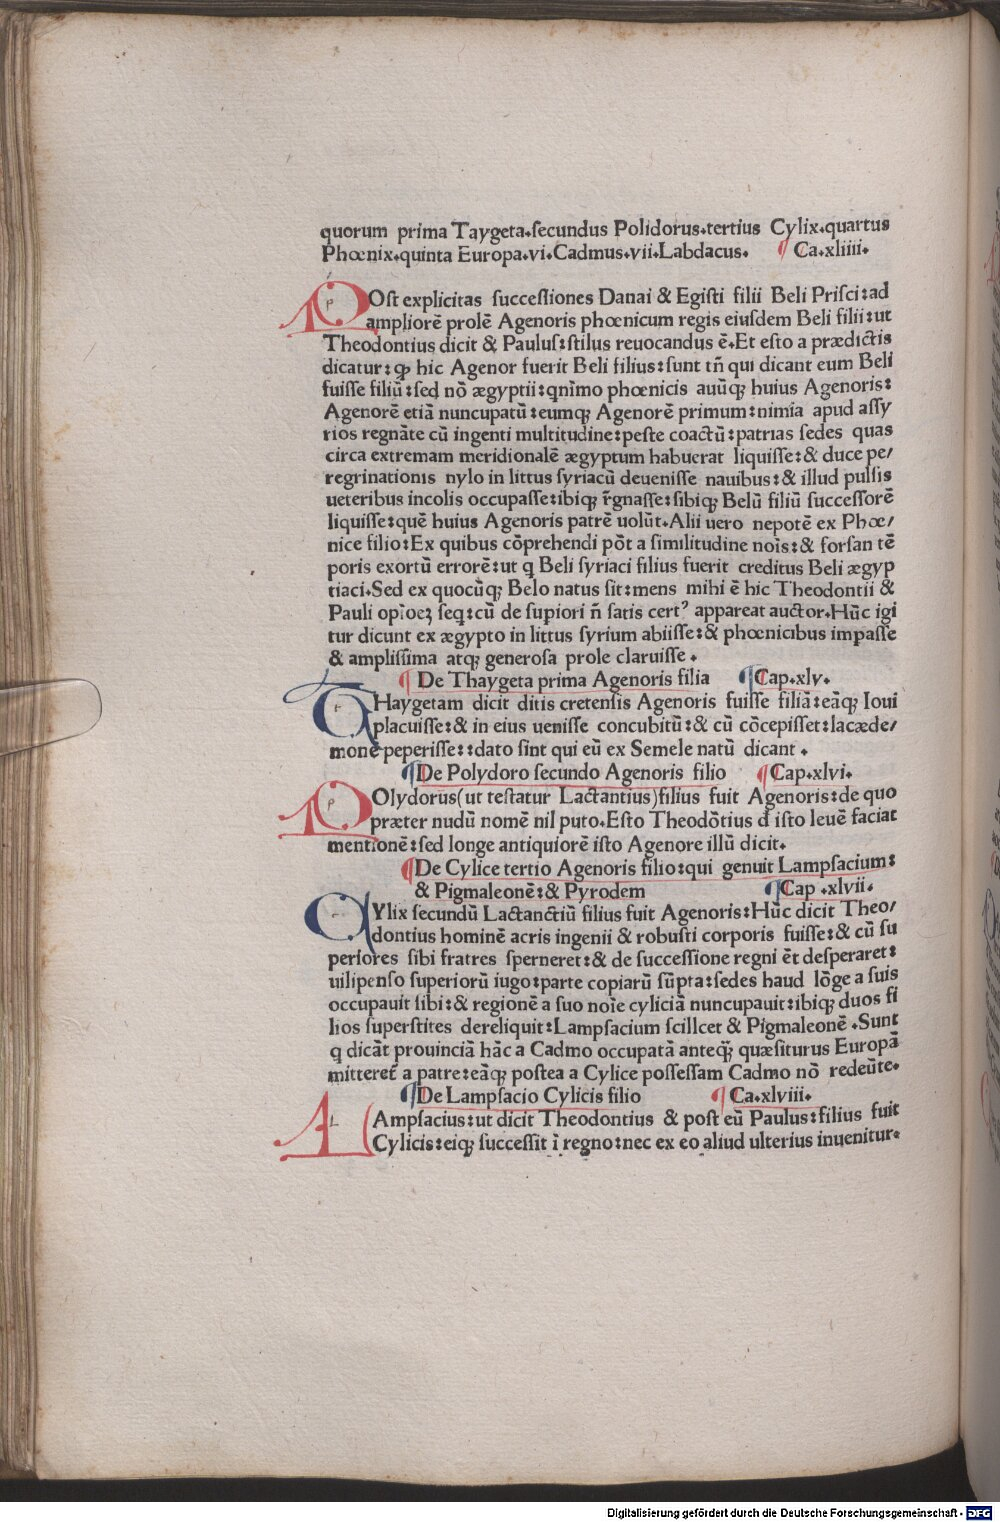 quorum prima Taygeta.secundus Polidorus.tertius Cylix.quartus
Phœnix.quinta Europa.vi.Cadmus.vii.Labdacus. ¶ Ca.xliiii.
POst explicitas successiones Danai & Egisti filii Beli Prisci:ad
ampliorē prolē Agenoris phœnicum regis eiusdem Beli filii:ut
Theodontius dicit & Paulus:stilus reuocandus ē.Et esto a prædictis
dicatur:ꝙ hic Agenor fuerit Beli filius:sunt tn̄ qui dicant eum Beli
fuisse filiū:sed nō ægyptii:qnīmo phœnicis auūq; huius Agenoris:
Agenorē etiā nuncupatū:eumq; Agenorē primum:nimia apud assy
rios regnāte cū ingenti multitudine:peste coactū:patrias sedes quas
circa extremam meridionalē ægyptum habuerat liquisse:& duce pe/
regrinationis nylo in littus syriacū deuenisse nauibus:& illud pulsis
ueteribus incolis occupasse:ibiq; r̄gnasse:sibiq; Belū filiū successorē
liquisse:quē huius Agenoris patrē uolūt.Alii uero nepotē ex Phœ/
nice filio:Ex quibus cōprehendi pōt a similitudine noīs:& forsan tē
poris exortū errorē:ut q Beli syriaci filius fuerit creditus Beli ægyp
tiaci.Sed ex quocūq; Belo natus sit:mens mihi ē hic Theodontii &
Pauli opīoeꝫ seq:cū de supiori n̄ satis certꝰ appareat auctor.Hūc igi
tur dicunt ex ægypto in littus syrium abiisse:& phœnicibus impasse
& amplissima atq; generosa prole claruisse.
¶ De Thaygeta prima Agenoris filia ¶Cap.xlv.
THaygetam dicit ditis cretensis Agenoris fuisse filiā:eāq; Ioui
placuisse:& in eius uenisse concubitū:& cū cōcepisset:lacæde/
monē peperisse::dato sint qui eū ex Semele natū dicant.
¶De Polydoro secundo Agenoris filio ¶Cap.xlvi.
POlydorus(ut testatur Lactantius)filius fuit Agenoris:de quo
præter nudū nomē nil puto.Esto Theodōtius d isto leuē faciat
mentionē:sed longe antiquiorē isto Agenore illū dicit.
¶De Cylice tertio Agenoris filio:qui genuit Lampsacium:
& Pigmaleonē:& Pyrodem ¶Cap .xlvii.
CYlix secundū Lactanctiū filius fuit Agenoris:Hūc dicit Theo/
dontius hominē acris ingenii & robusti corporis fuisse:& cū su
periores sibi fratres sperneret:& de successione regni ēt desperaret:
uilipenso superiorū iugo:parte copiarū sūpta:sedes haud lōge a suis
occupauit sibi:& regionē a suo noīe cyliciā nuncupauit:ibiq; duos fi
lios superstites dereliquit:Lampsacium scillcet & Pigmaleonē .Sunt
q dicāt prouinciā hāc a Cadmo occupatā anteq̄ȝ quæsiturus Europā
mitteret̄ a patre:eāq; postea a Cylice possessam Cadmo nō redeūte.
¶De Lampsacio Cylicis filio ¶ Ca.xlviii.
LAmpsacius:ut dicit Theodontius & post eū Paulus:filius fuit
Cylicis:eiq; successit ī regno:nec ex eo aliud ulterius inuenitur.
Digitalisierung gefördert durch die Deutsche Forschungsgemeinschaft - DFG